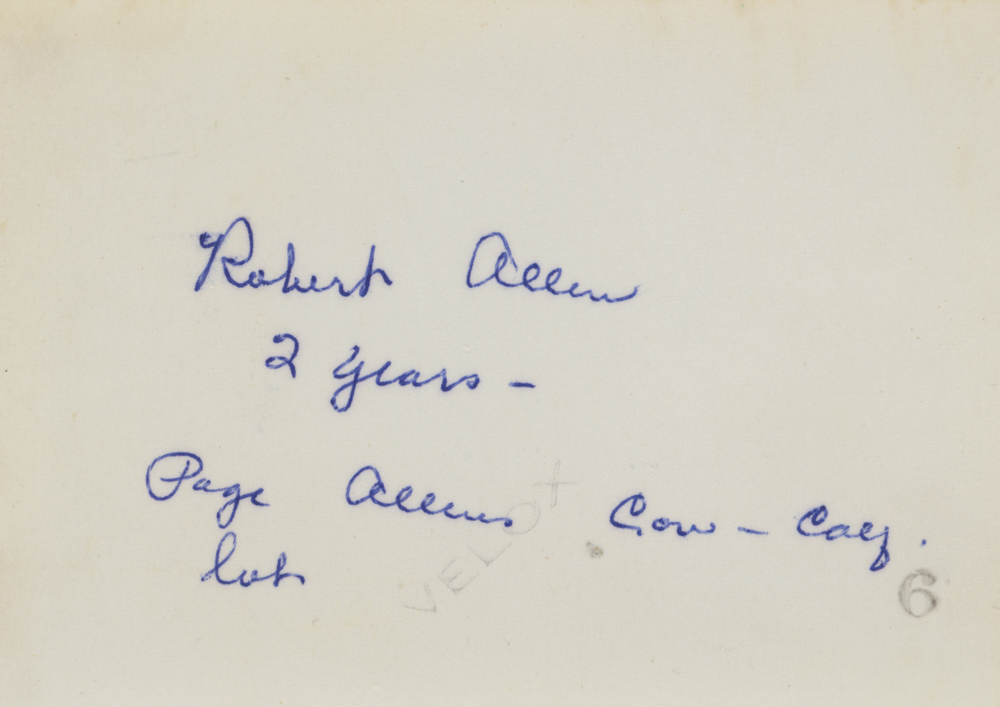 Robert Allen
2 years -
Page Allens Cow - Calf.
lot
VELOX
6